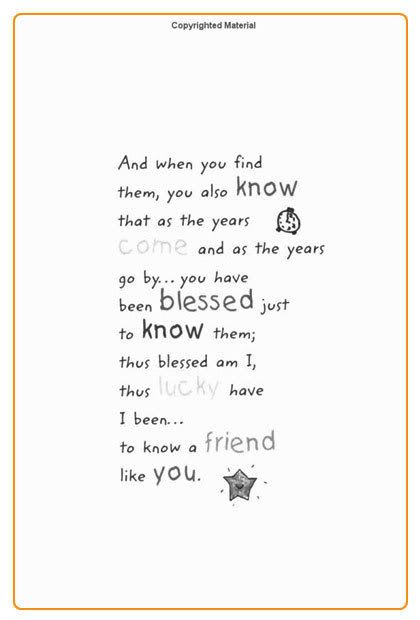 Copyrighted Material
And when you find
them, you also know
that as the years
come and as the years
go by... you have
been blessed just
to know them;
thus blessed am I,
thus lucky have
I been...
to know a friend
like you.